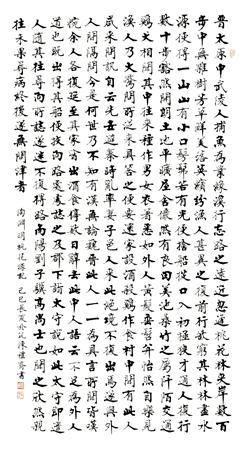 晉太原中武陵人捕魚為業緣溪行忘路之遠近忽逢桃花林夾岸數百
步中無雜樹芳草鮮美落英繽紛漁人甚異之復前行欲窮其林林盡水
源便得一山山有小口髣髴若有光便捨船從口入初極狹才通人復行
數十步豁然開朗土地平曠屋舍儼然有良田美池桑竹之屬阡陌交通
雞犬相聞其中往來種作男女衣著悉如外人黃髮垂髫並怡然自樂見
漁人乃大驚問所從來具答之便要還家設酒殺雞作食村中聞有此人
咸來問訊自云先世避秦時亂率妻子邑人來此絕境不復出焉遂與外
人間隔問今是何世乃不知有漢無論魏晉此人一一為具言所聞皆歎
惋餘人各復延至其家皆出酒食停數日辭去此中人語云不足為外人
道也既出得其船便扶向路處處誌之及郡下詣太守說如此太守即遣
人隨其往尋向所誌遂迷不復得路南陽劉子驥高尚士也聞之欣然親
往未果尋病終後遂無問津者
陶淵明桃花源記 己巳長夏